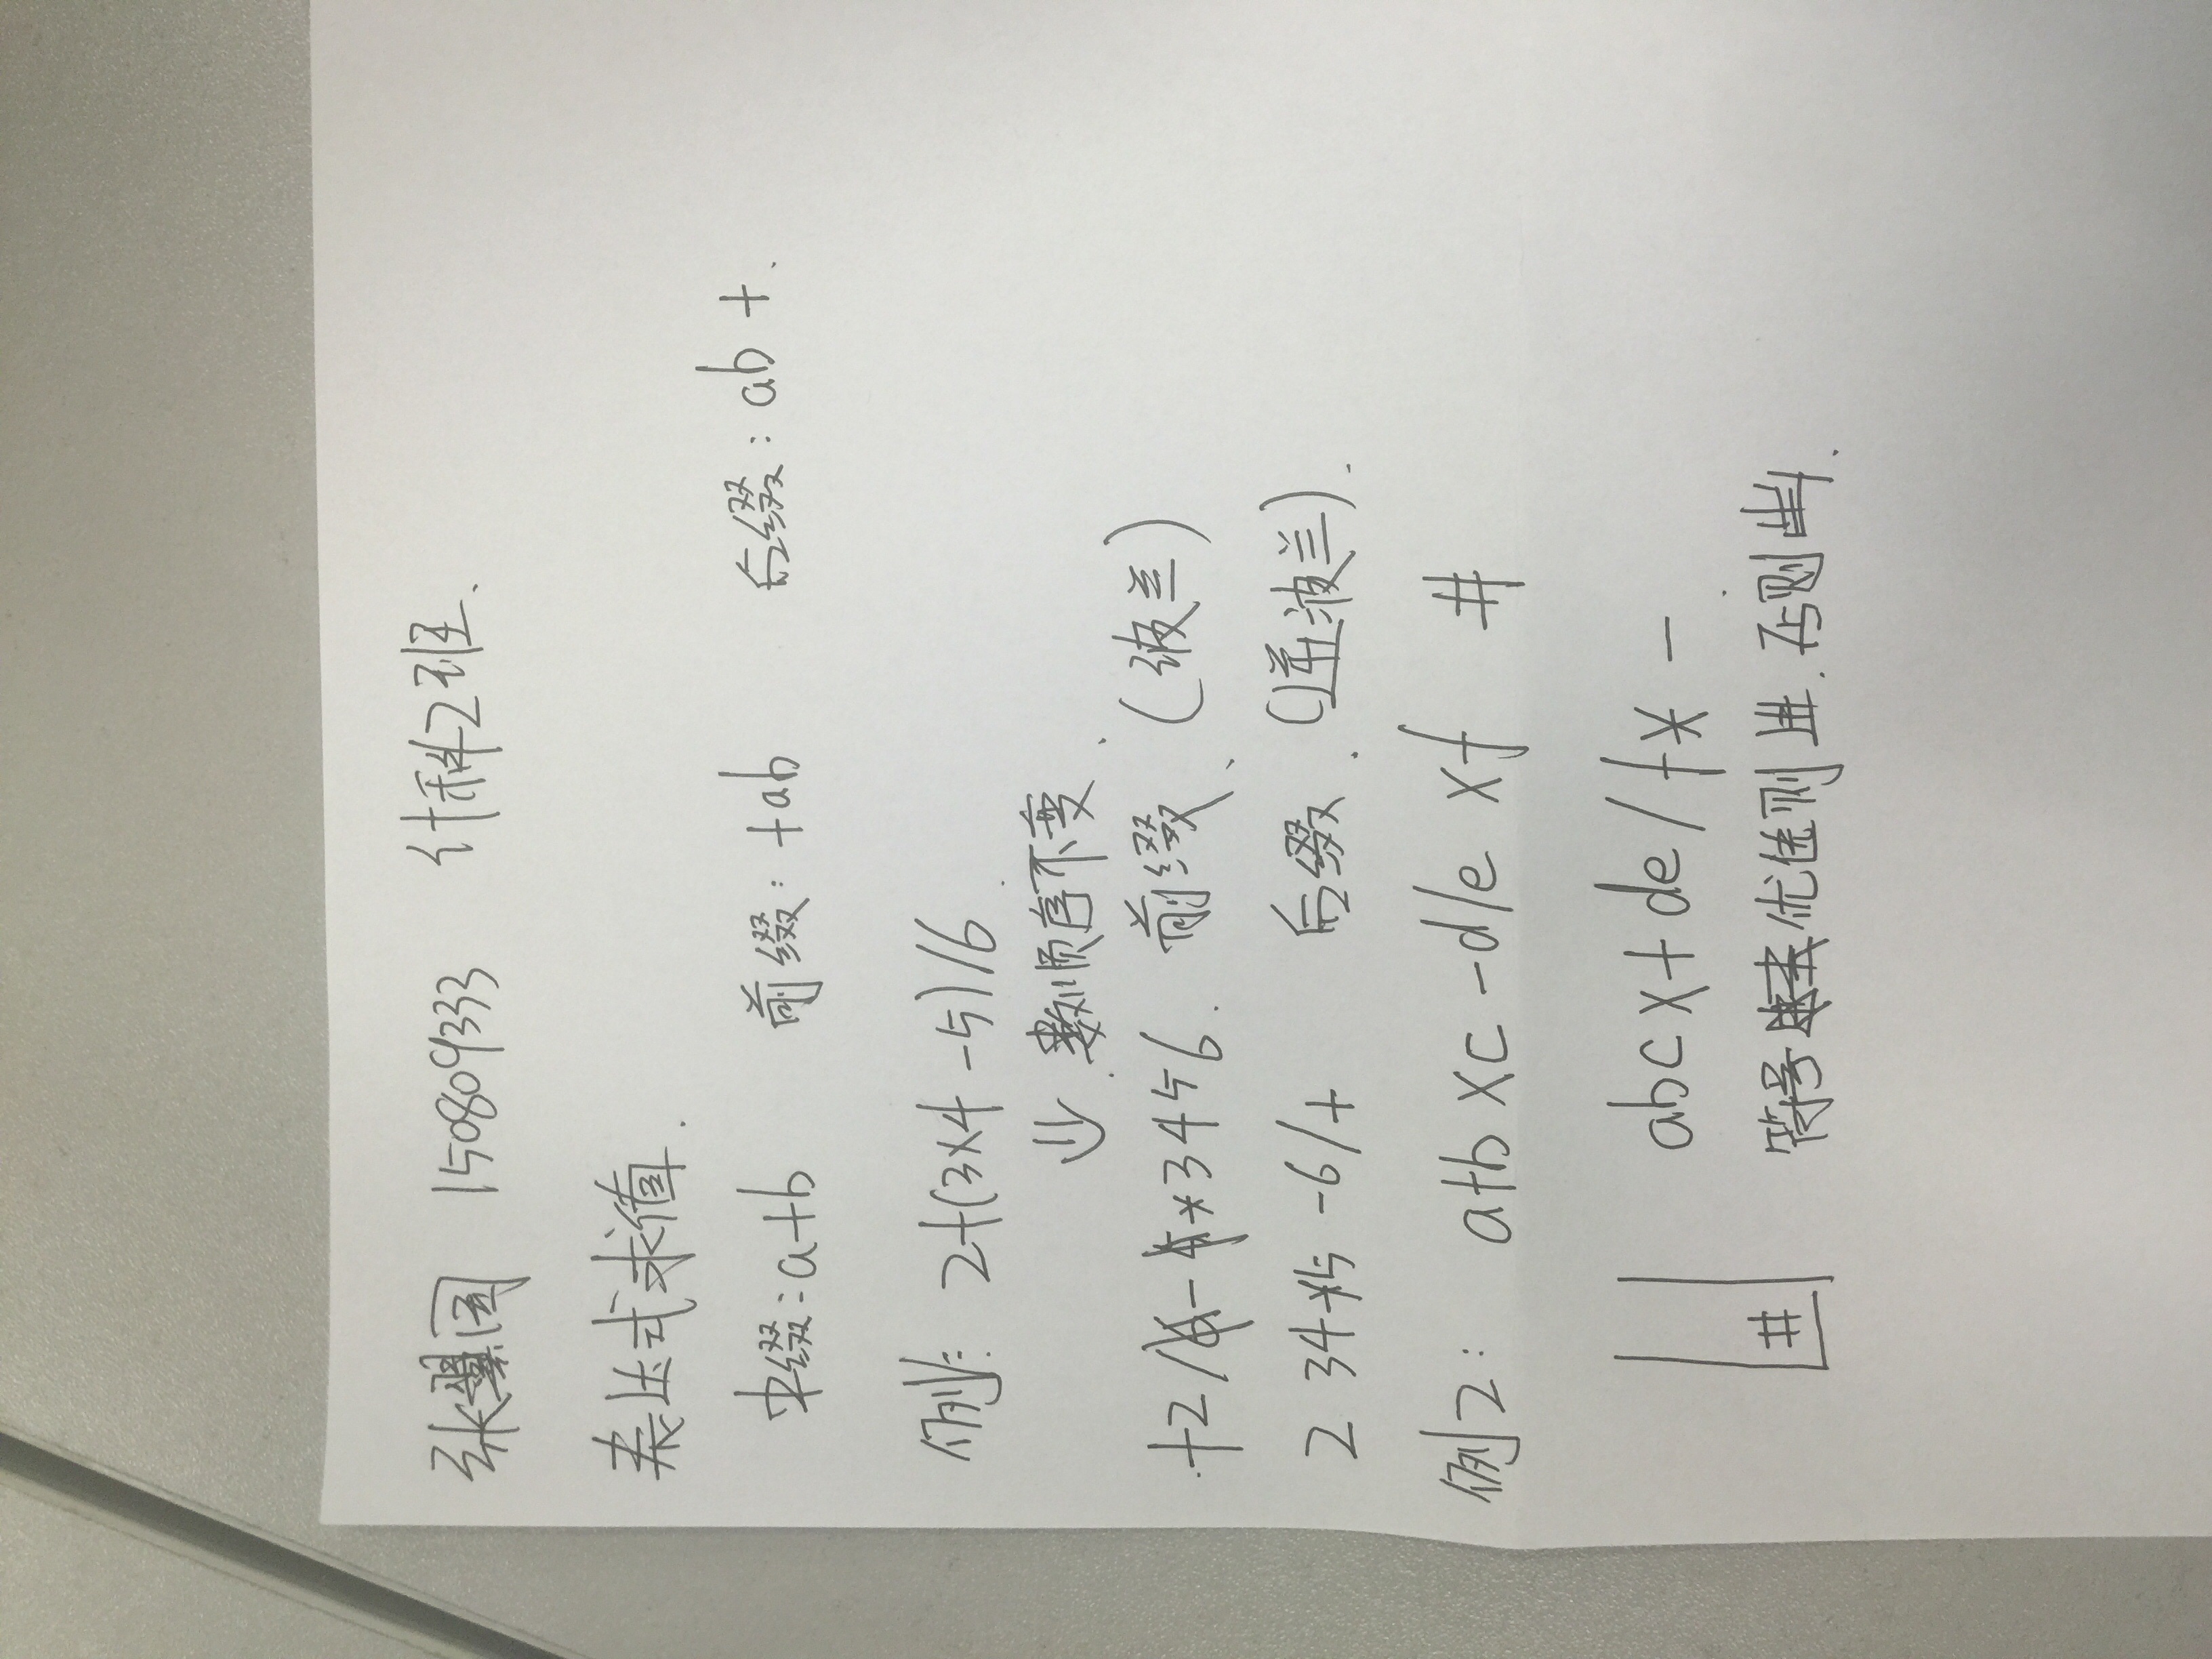 张翼国 150809333 计科2班.
表达式求值.
中缀:a+b 前缀:+ab 后缀:ab+.
例1: 2+(3×4-5)/6
少.数顺序不变.
+2/-*3456. 前缀、(波兰)
2 34*5-6/+ 后缀.(逆波兰).
例2: a+b×c-d/e×f #
abc×+de/f*-
# 符号优先则进.否则出.